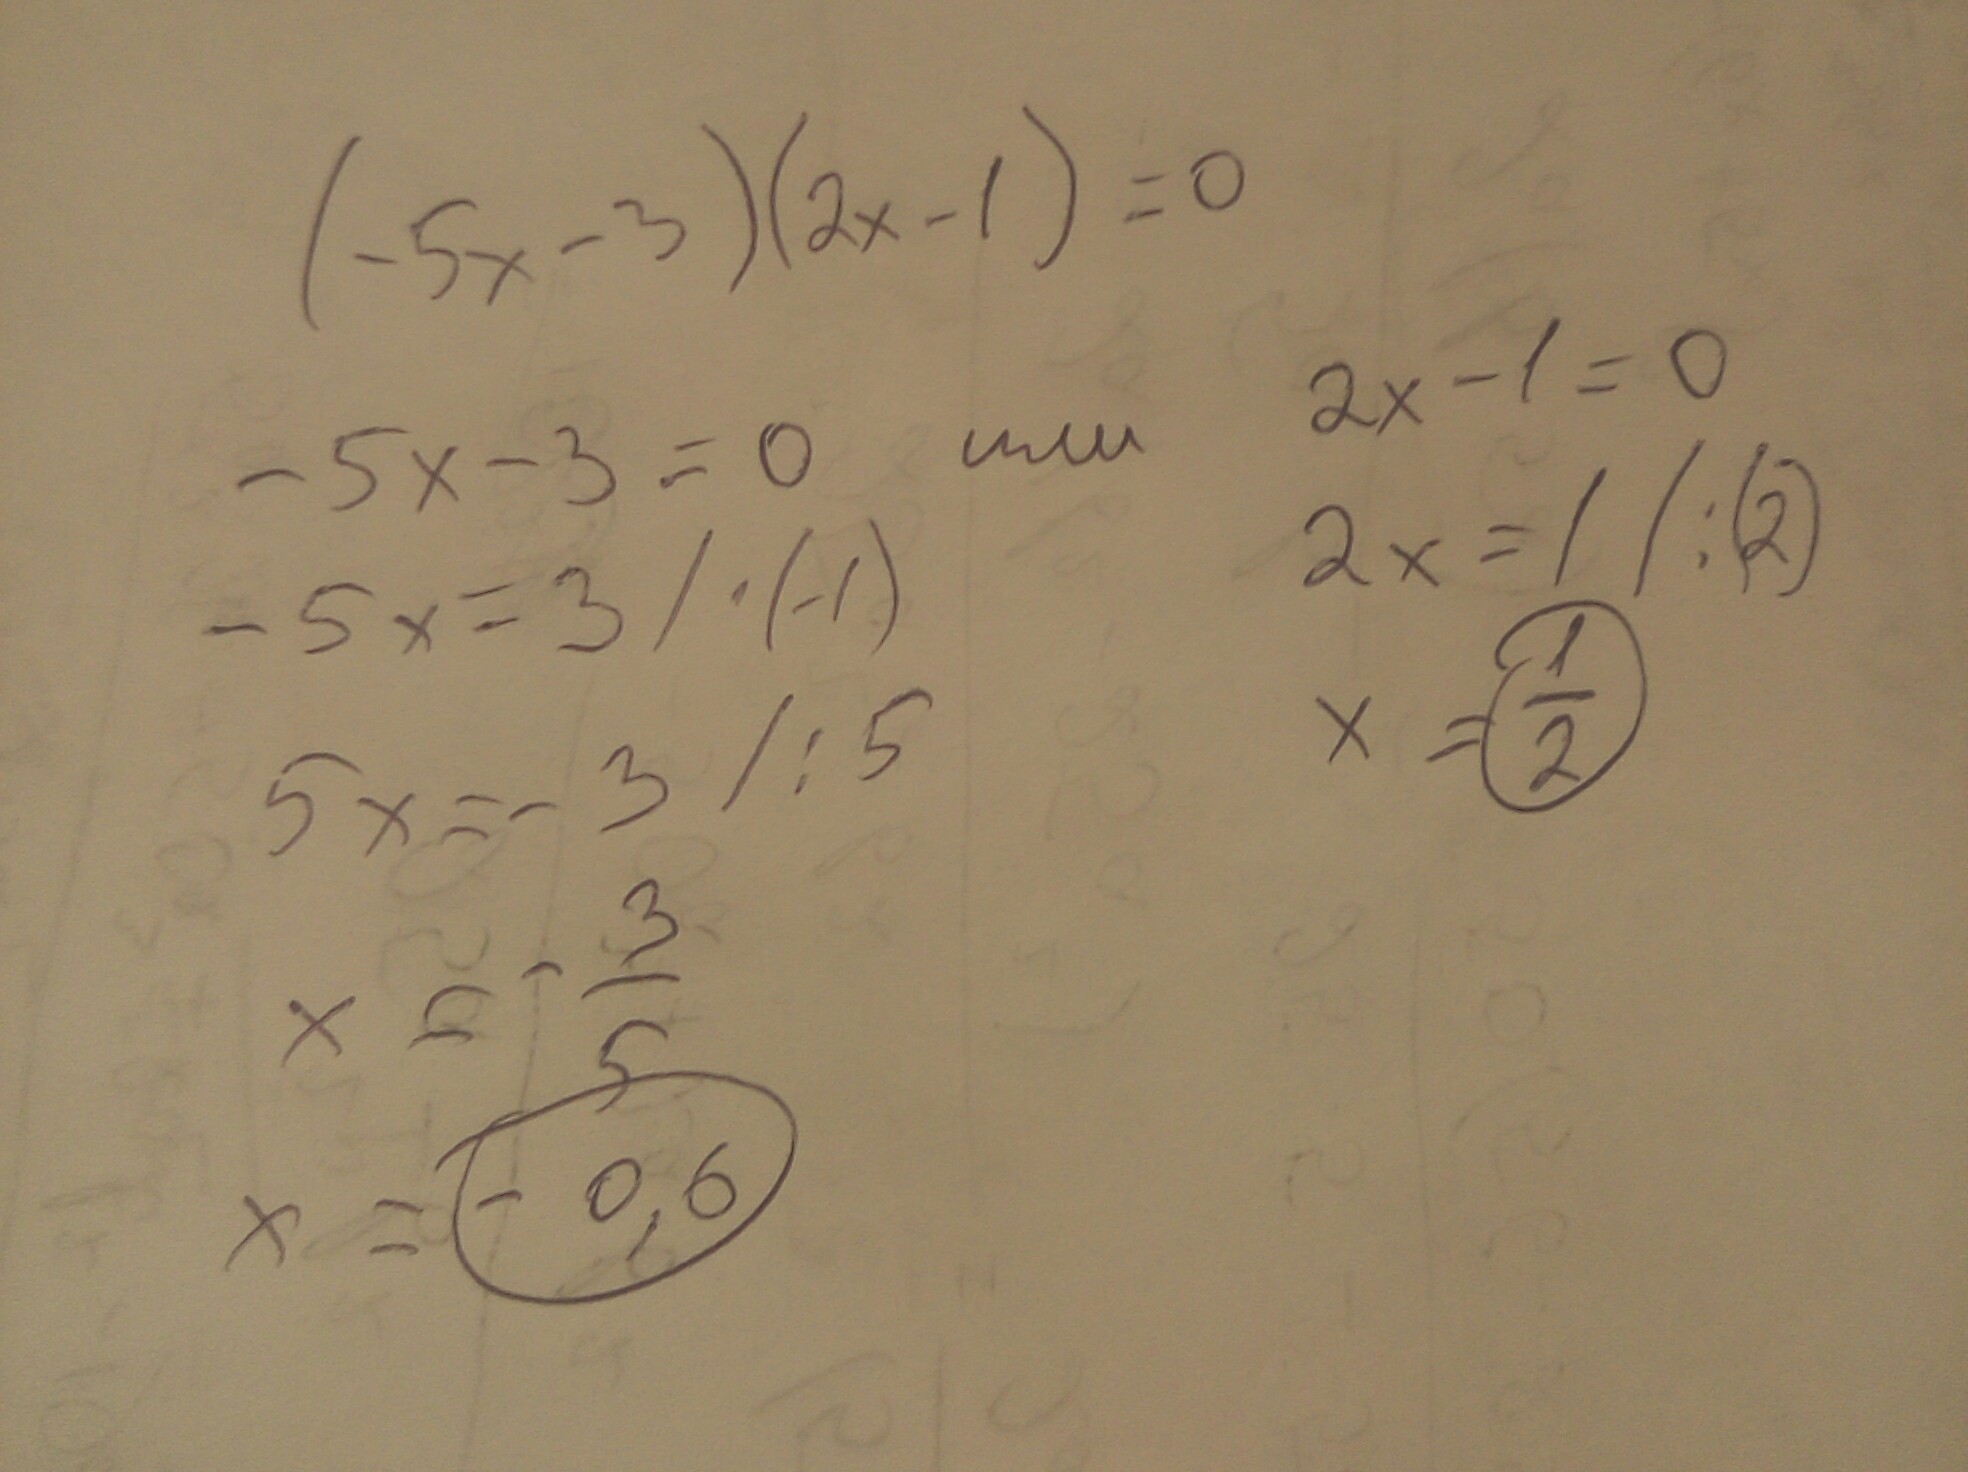 (-5x-3)(2x-1)=0
-5x-3=0 или 2x-1=0
-5x=3 / ·(-1)
5x=-3 / :5
x = -3/5
x = -0,6
2x=1 / :(2)
x = 1/2